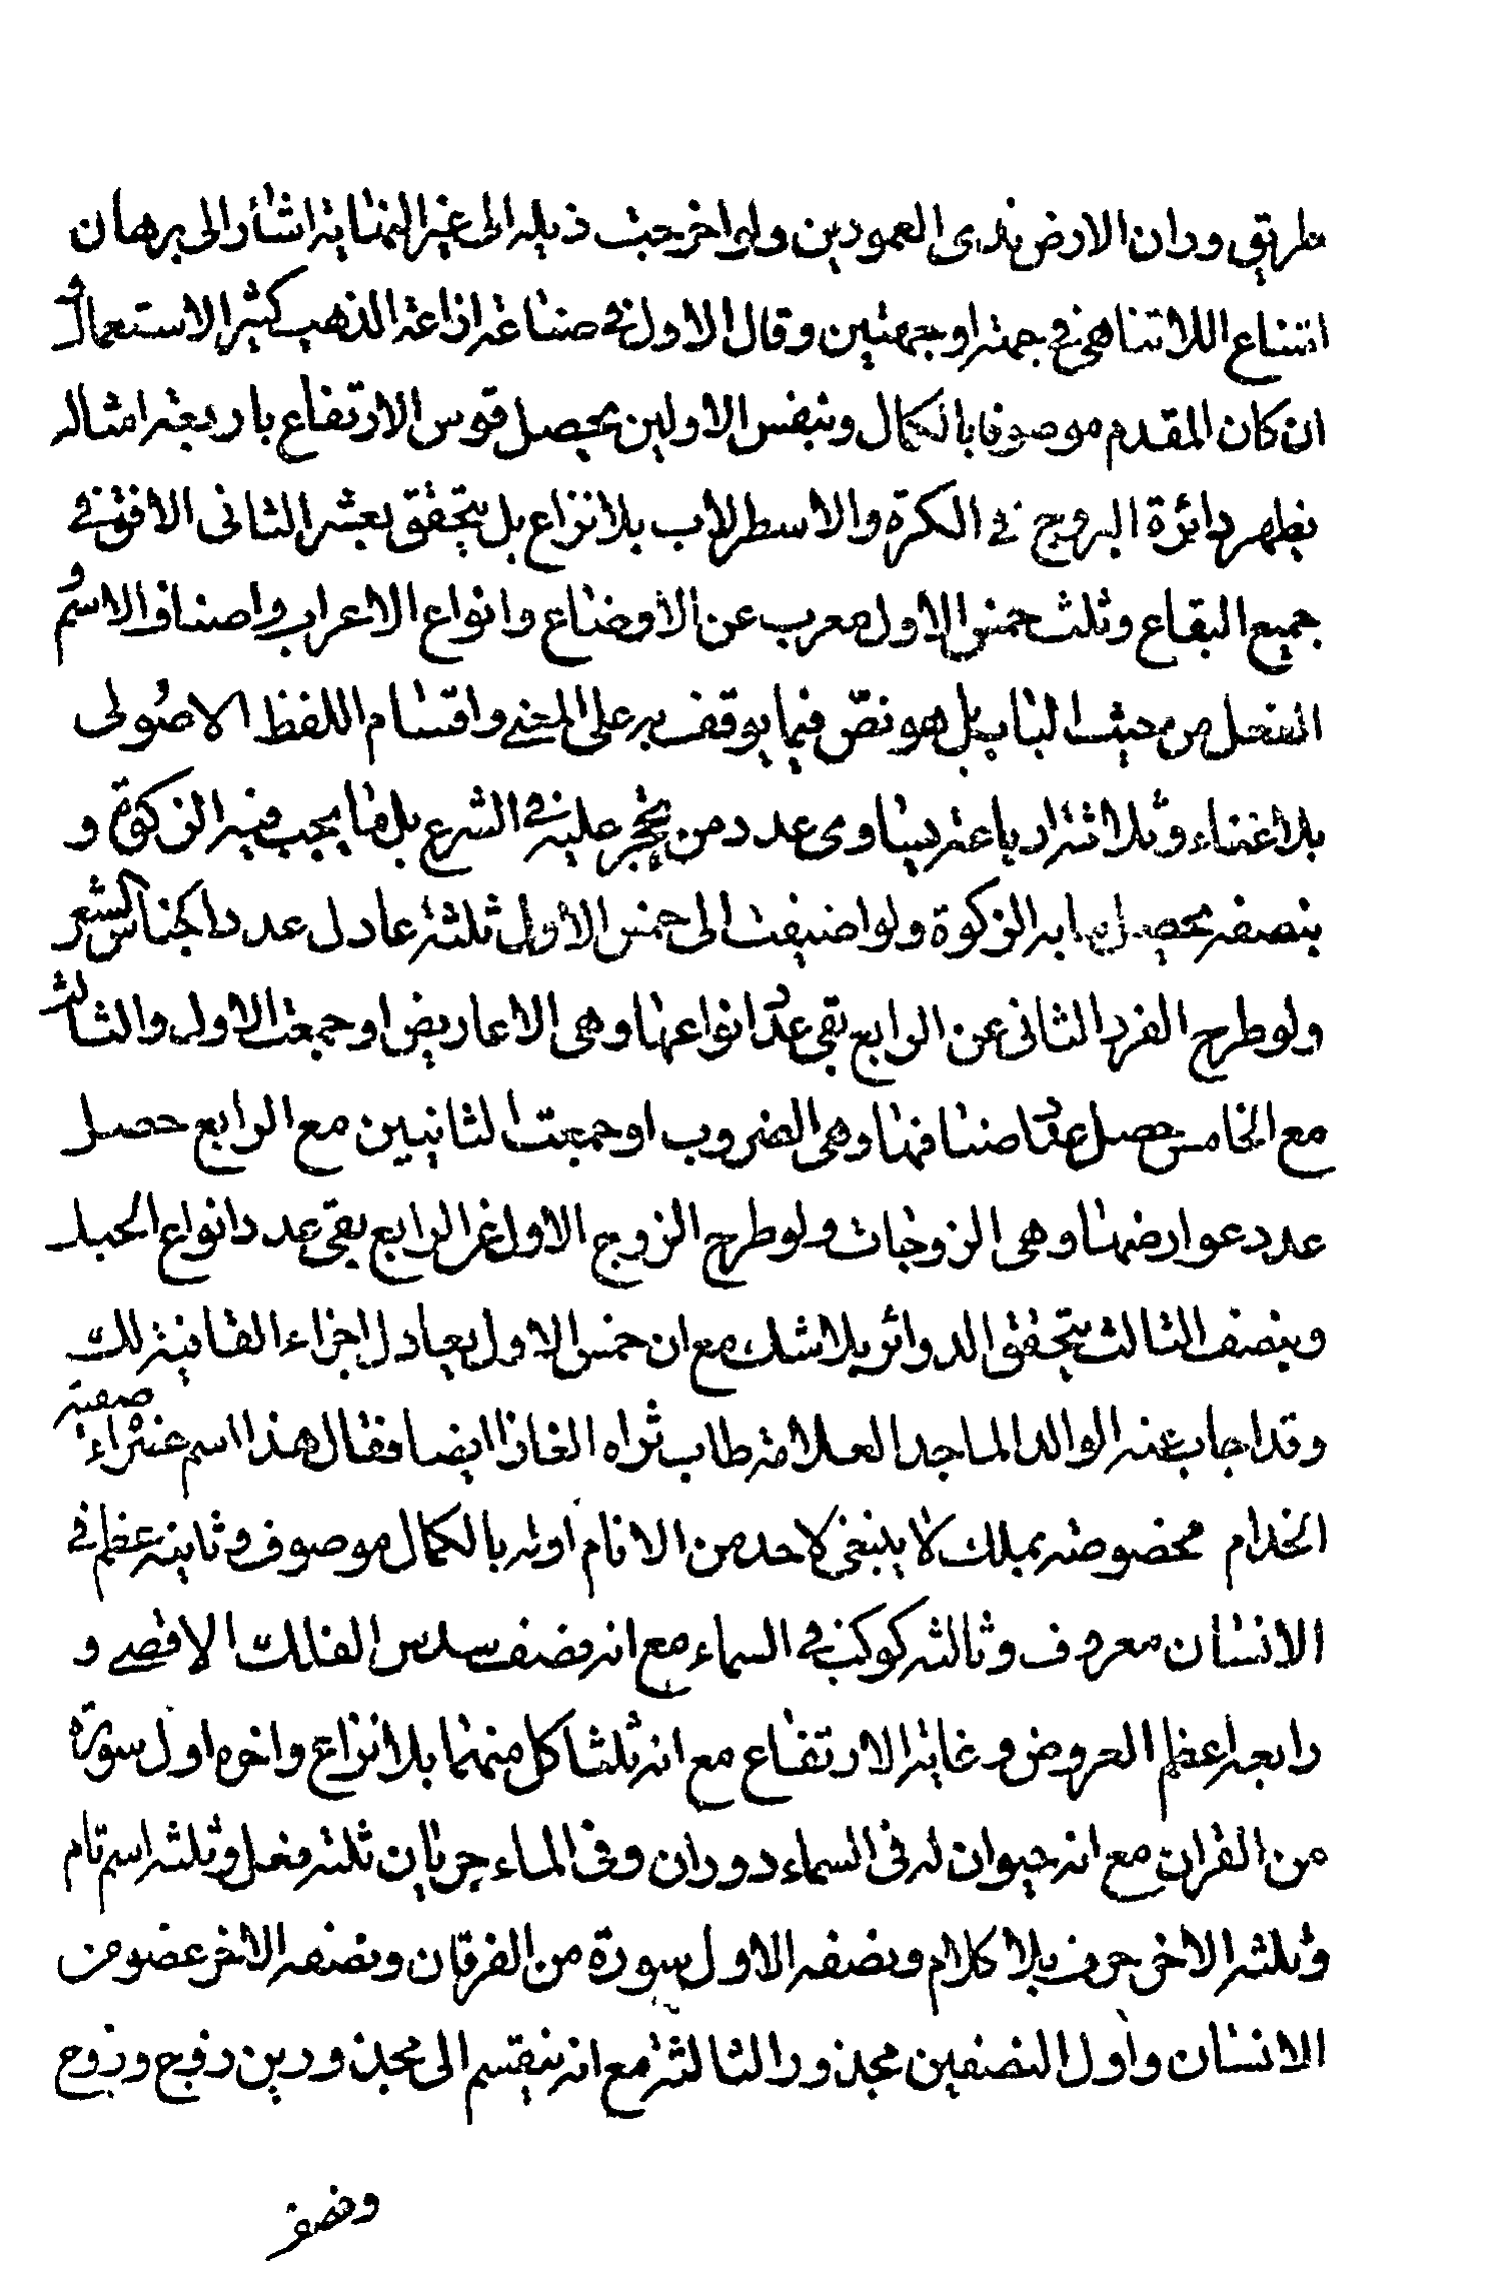 طريق وران الارض بذى العمودين ولو اخرجت ذيله الى غير النهاية اشار الى برهان
امتناع اللاتناهى فى جهة او جهتين وقال الاول فى صناعة اذاعة الذهب كثير الاستعمال و
ان كان المقدم موصوفا بالكمال وبنفس الاولين يحصل قوس الارتفاع باربعة امثاله
يظهر دائرة البروج فى الكرة والاسطرلاب بلا نزاع بل يتحقق بعشر الثانى الافق فى
جميع البقاع وثلث خمس الاول معرب عن الاوضاع وانواع الاعراب واصناف الاسم و
الفعل من حيث البناء بل هو نص فيما يوقف به على المعنى واقسام اللفظ الاصولى
بلا غناء وثلاثة ارباعه يساوى عدد من يحجر عليه فى الشرع بل ما يجب فيه الزكوة و
بنصفه يحصل ما به الزكوة ولو اضيفت الى خمس الاول ثلثة عادل عدد اجناس الشعر
ولو طرح الفرد الثانى عن الرابع بقى عدد انواعها وهى الاعاريض او جمعت الاول والثالث
مع الخامس حصل عدد اصنافها وهى الضروب او جمعت الثانيين مع الرابع حصل
عدد عوارضها وهى الزوجات ولو طرح الزوج الاول عن الرابع بقى عدد انواع الحبل
وبنصف الثالث يتحقق الدوائر بلا شك مع ان خمس الاول يعادل اجزاء القافية لك
وقد اجاب عنه الوالد الماجد العلامة طاب ثراه الغازا ايضا فقال هذا اسم عشراء صفية
الخدام مخصوصة بملك لا ينبغى لاحد من الانام اوله بالكمال موصوف وثانيه عظم فى
الانسان معروف وثالثه كوكب فى السماء مع انه نصف سدس الفلك الاقصى و
رابعه اعظم العروض وغاية الارتفاع مع انه ثلثا كل منهما بلا نزاع واخره اول سورة
من القران مع انه حيوان له فى السماء دوران وفى الماء جريان ثلثه فعل وثلثه اسم تام
وثلثه الاخر حرف بلا كلام ونصفه الاول سورة من الفرقان ونصفه الاخر عضو من
الانسان واول النصفين مجذور الثالثة مع انه ينقسم الى مجذورين زوج وزوج
ونصفه